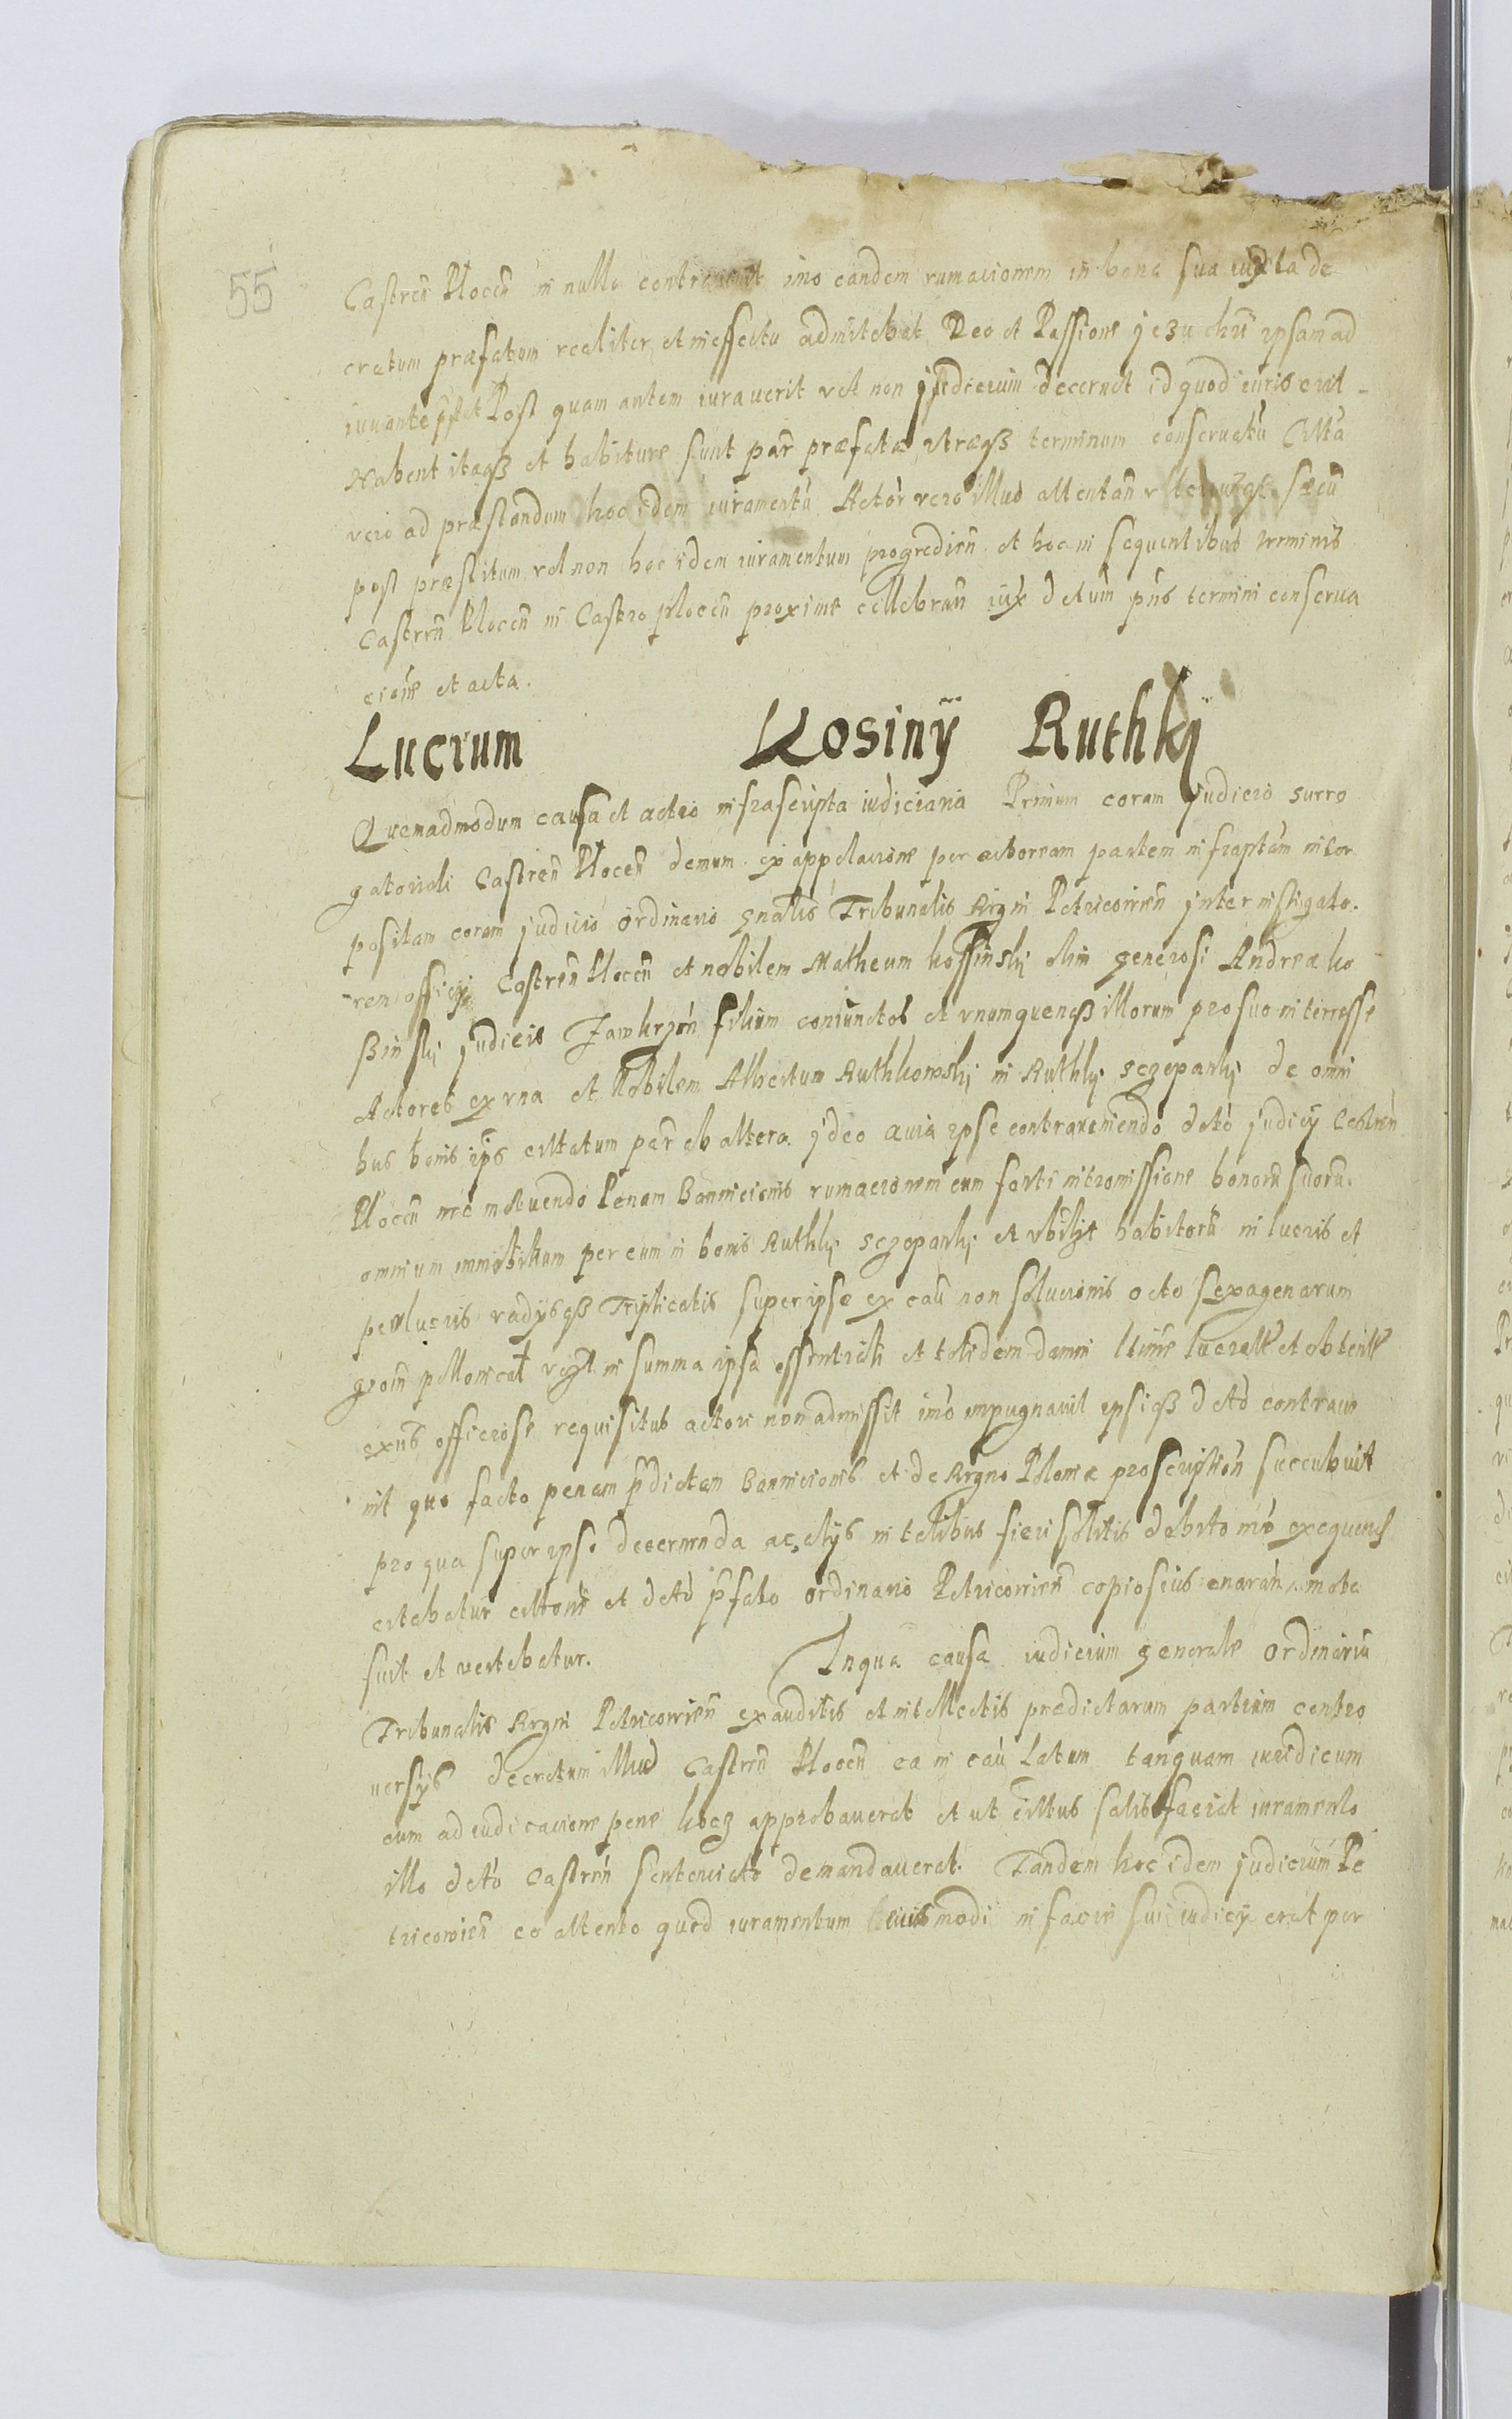 55
Castreñ Ploceñ in nullo contravenit imo eandem rumacionem in bona sua iuxta de
cretum præfatum realiter et in effectu admitebat Deo et Passione jezu chri ipsam ad
iuuante Post quam autem iurauerit vel non judicium decernet id quod iuris erit
Habent itaqȝ et habiture sunt par præfatæ vtræqȝ terminum conseruatu Citta
vero ad præstandum hoc idem iuramentu Actor vero illud attentañ
post præstitum vel non hoc idem iuramentum progredien et hoc in sequentibus terminis
Castreñ Plocen in Castro plocen proxime cellebran iux detum pñs termini conserua
cione et acta.
Lucrum Kosinÿ Ruthkj
Quemadmodum causa et actio infrascripta iudiciaria Primum coram judicio surro
gatoriali Castreñ Plocen demum ex appelacione per actoream partem infraptam inter
positam coram judicio ordinario gnalis Tribunalis Regni Petricovien inter instigato.
rem officij Castreñ Plocen et nobilem Matheum kossinskj olim generosi Andreæ ko
ßinskj judicis Zawkrzen filium coniunctos et vnumquenqȝ illorum pro suo interesse
Actores ex vna et Nobilem Albertum Ruthkowskj in Ruthkj sczepankj de omni
bus bonis ips cittatum par ab altera jdeo quia ipse contraveniendo deto judicij Castren
Plocen nec metuendo Penam Bannicionis rumacionem cum forti intromissione bonoru suoru.
omnium immobilium per eum in bonis Ruthkj sczepankj et vbilzt habitoru in lucris et
perlucris vadijsqȝ Triplicatis super ipso ex cau non solucionis octo sexagenarum
in summa ipsa essentiali et totidem damni
officiose requisitus actori non admissit imo impugnauit ipsiqȝ deto contraue
nit quo facto penam pdictam Bannicionis et de Regno Poloniæ proscription succubuit
pro qua super ipso decernenda ac alijs in talibus fieri solitis debito mo exequens
citabatur cittone et deto pfato ordinario Petricovien copiosius enarat mota
fuit et vertebatur. Inqua causa iudicium generale ordinariu
Tribunalis Regni Petricovien exauditis et intellectis prædictarum partium contro
uersijs decretum illud Castren Plocen ea in cau Latum tanquam iuridicum
cum adiudicatione pene approbauerat et ut cittus satisfaciat iuramento
illo deto Castren sentenciato demandauerat. Tandem hoc idem judicium Pe
tricovien eo attento quod iuramentum huiusmodi in facie sui iudicij erat per